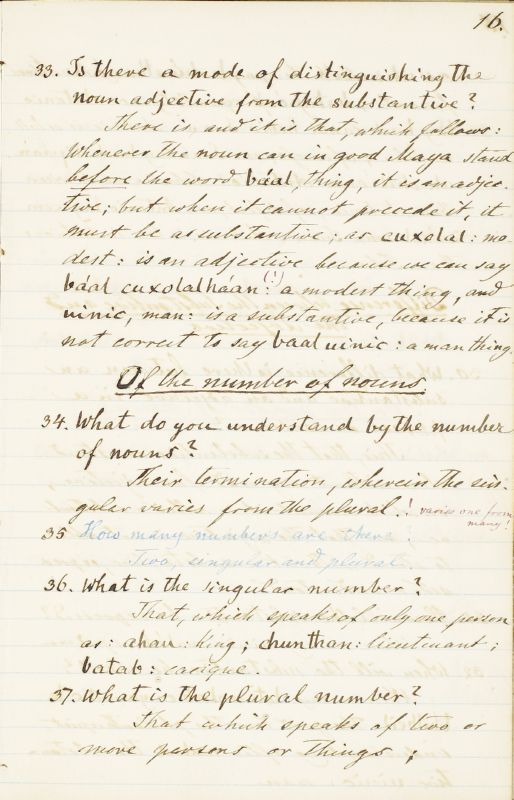 16.
33. Is there a mode of distinguishing the
noun adjective from the substantive?
There is, and it is that, which follows:
Whenever the noun can in good Maya stand
before the word báal, thing, it is an adjec-
tive; but when it cannot precede it, it
must be a substantive; as cuxolal: mo-
dest: is an adjective because we can say
báal cuxolalháan: (!) a modest thing, and
uinic, man: is a substantive, because it is
not correct to say baal uinic: a man thing.
Of the number of nouns.
34. What do you understand by the number
of nouns?
Their termination, wherein the sin-
gular varies from the plural.! varies one from
many!
35 How many numbers are there?
Two, singular and plural.
36. What is the singular number?
That, which speaks of only one person
as: ahau: king; chunthan: lieutenant;
batab: cacique.
37. What is the plural number?
That which speaks of two or
more persons or things;